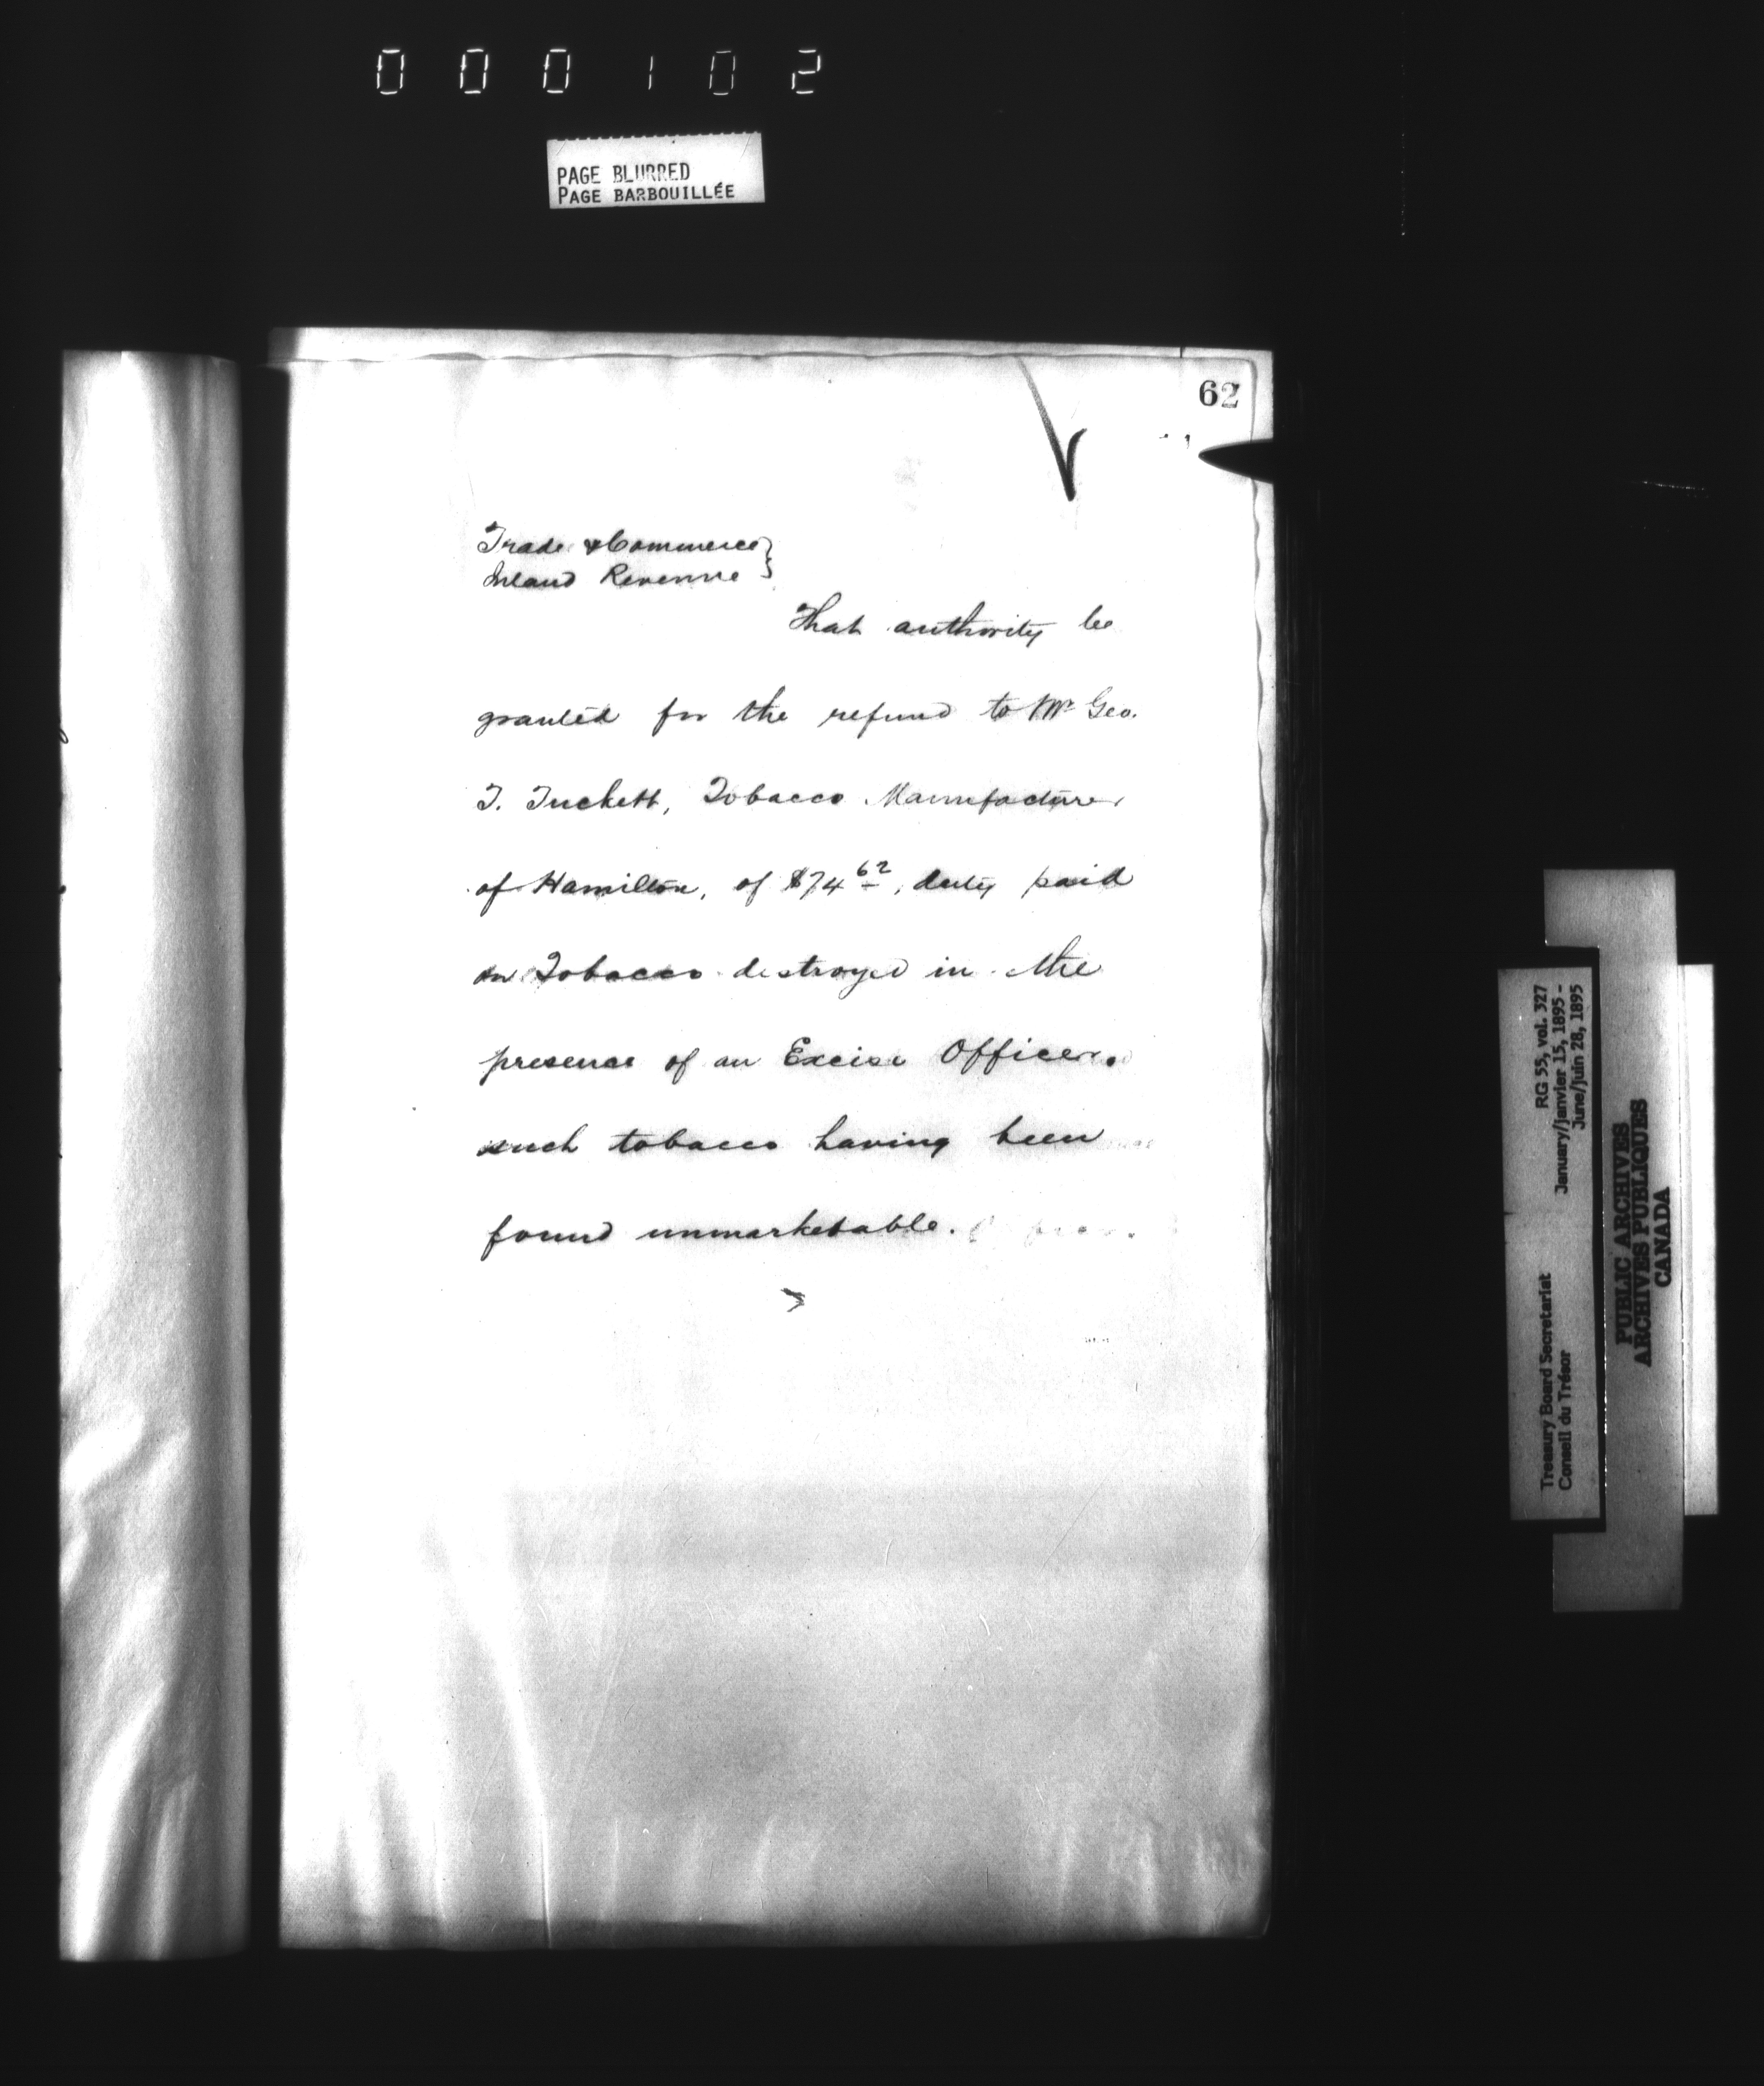 000102
PAGE BLURRED
PAGE BARBOUILLÉE
62
Trade & Commerce }
Inland Revenue }
That authority be
granted for the refund to Mr Geo.
T. Tuckett, Tobacco Manufacturer
of Hamilton, of $74 62, duty paid
on Tobacco destroyed in the
presence of an Excise Officer.
such tobacco having been
found unmarketable.
Treasury Board Secretariat RG 55, vol. 327
Conseil du Trésor January/janvier 15, 1895 -
June/juin 28, 1895
PUBLIC ARCHIVES
ARCHIVES PUBLIQUES
CANADA